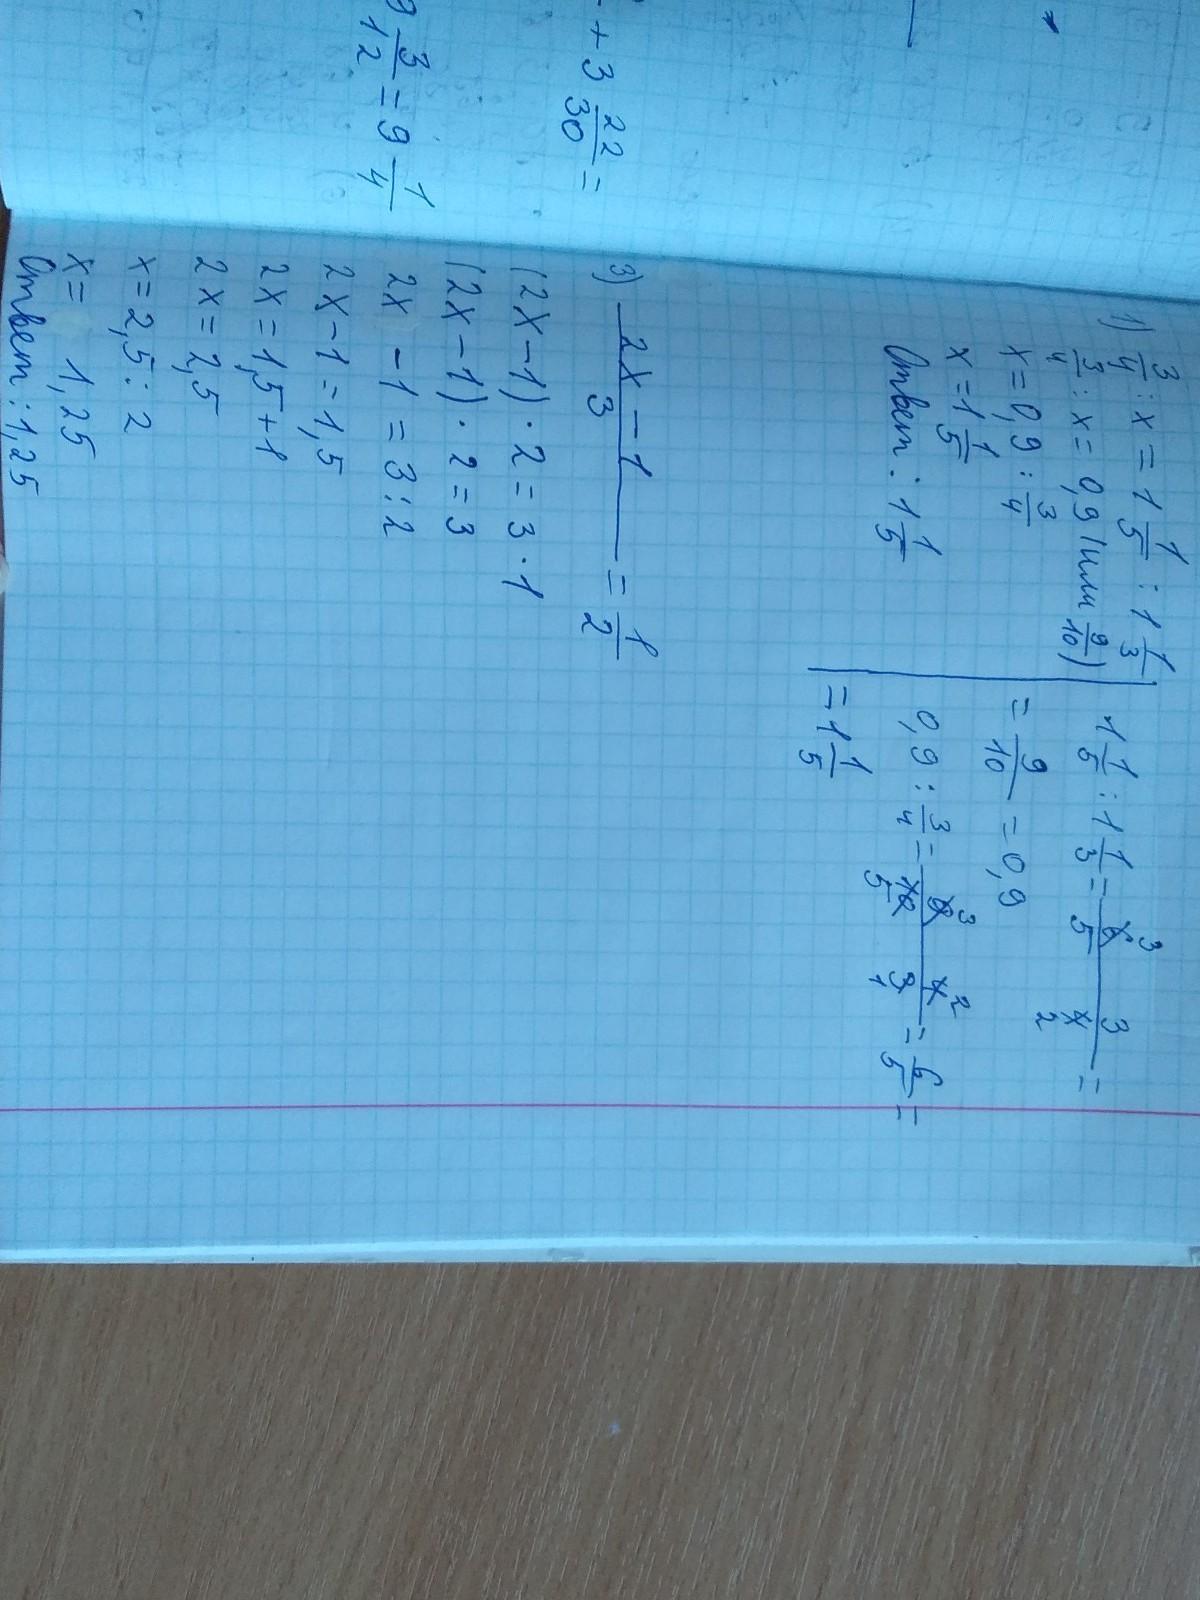 + 3 22/30 =
9 3/12 = 9 1/4
1) 3/4 : x = 1 1/5 : 1 1/3
3/4 : x = 0,9 (или 9/10)
x = 0,9 : 3/4
x = 1 1/5
Ответ : 1 1/5
1 1/5 : 1 1/3 = 6 3 / 5 3 / 4 2 =
= 9/10 = 0,9
0,9 : 3/4 = 9 3 / 10 5 4 2 / 3 1 = 6/5 =
= 1 1/5
3) 2x - 1 / 3 = 1/2
(2x - 1) · 2 = 3 · 1
(2x - 1) · 2 = 3
2x - 1 = 3 : 2
2x - 1 = 1,5
2x = 1,5 + 1
2x = 2,5
x = 2,5 : 2
x = 1,25
Ответ : 1,25